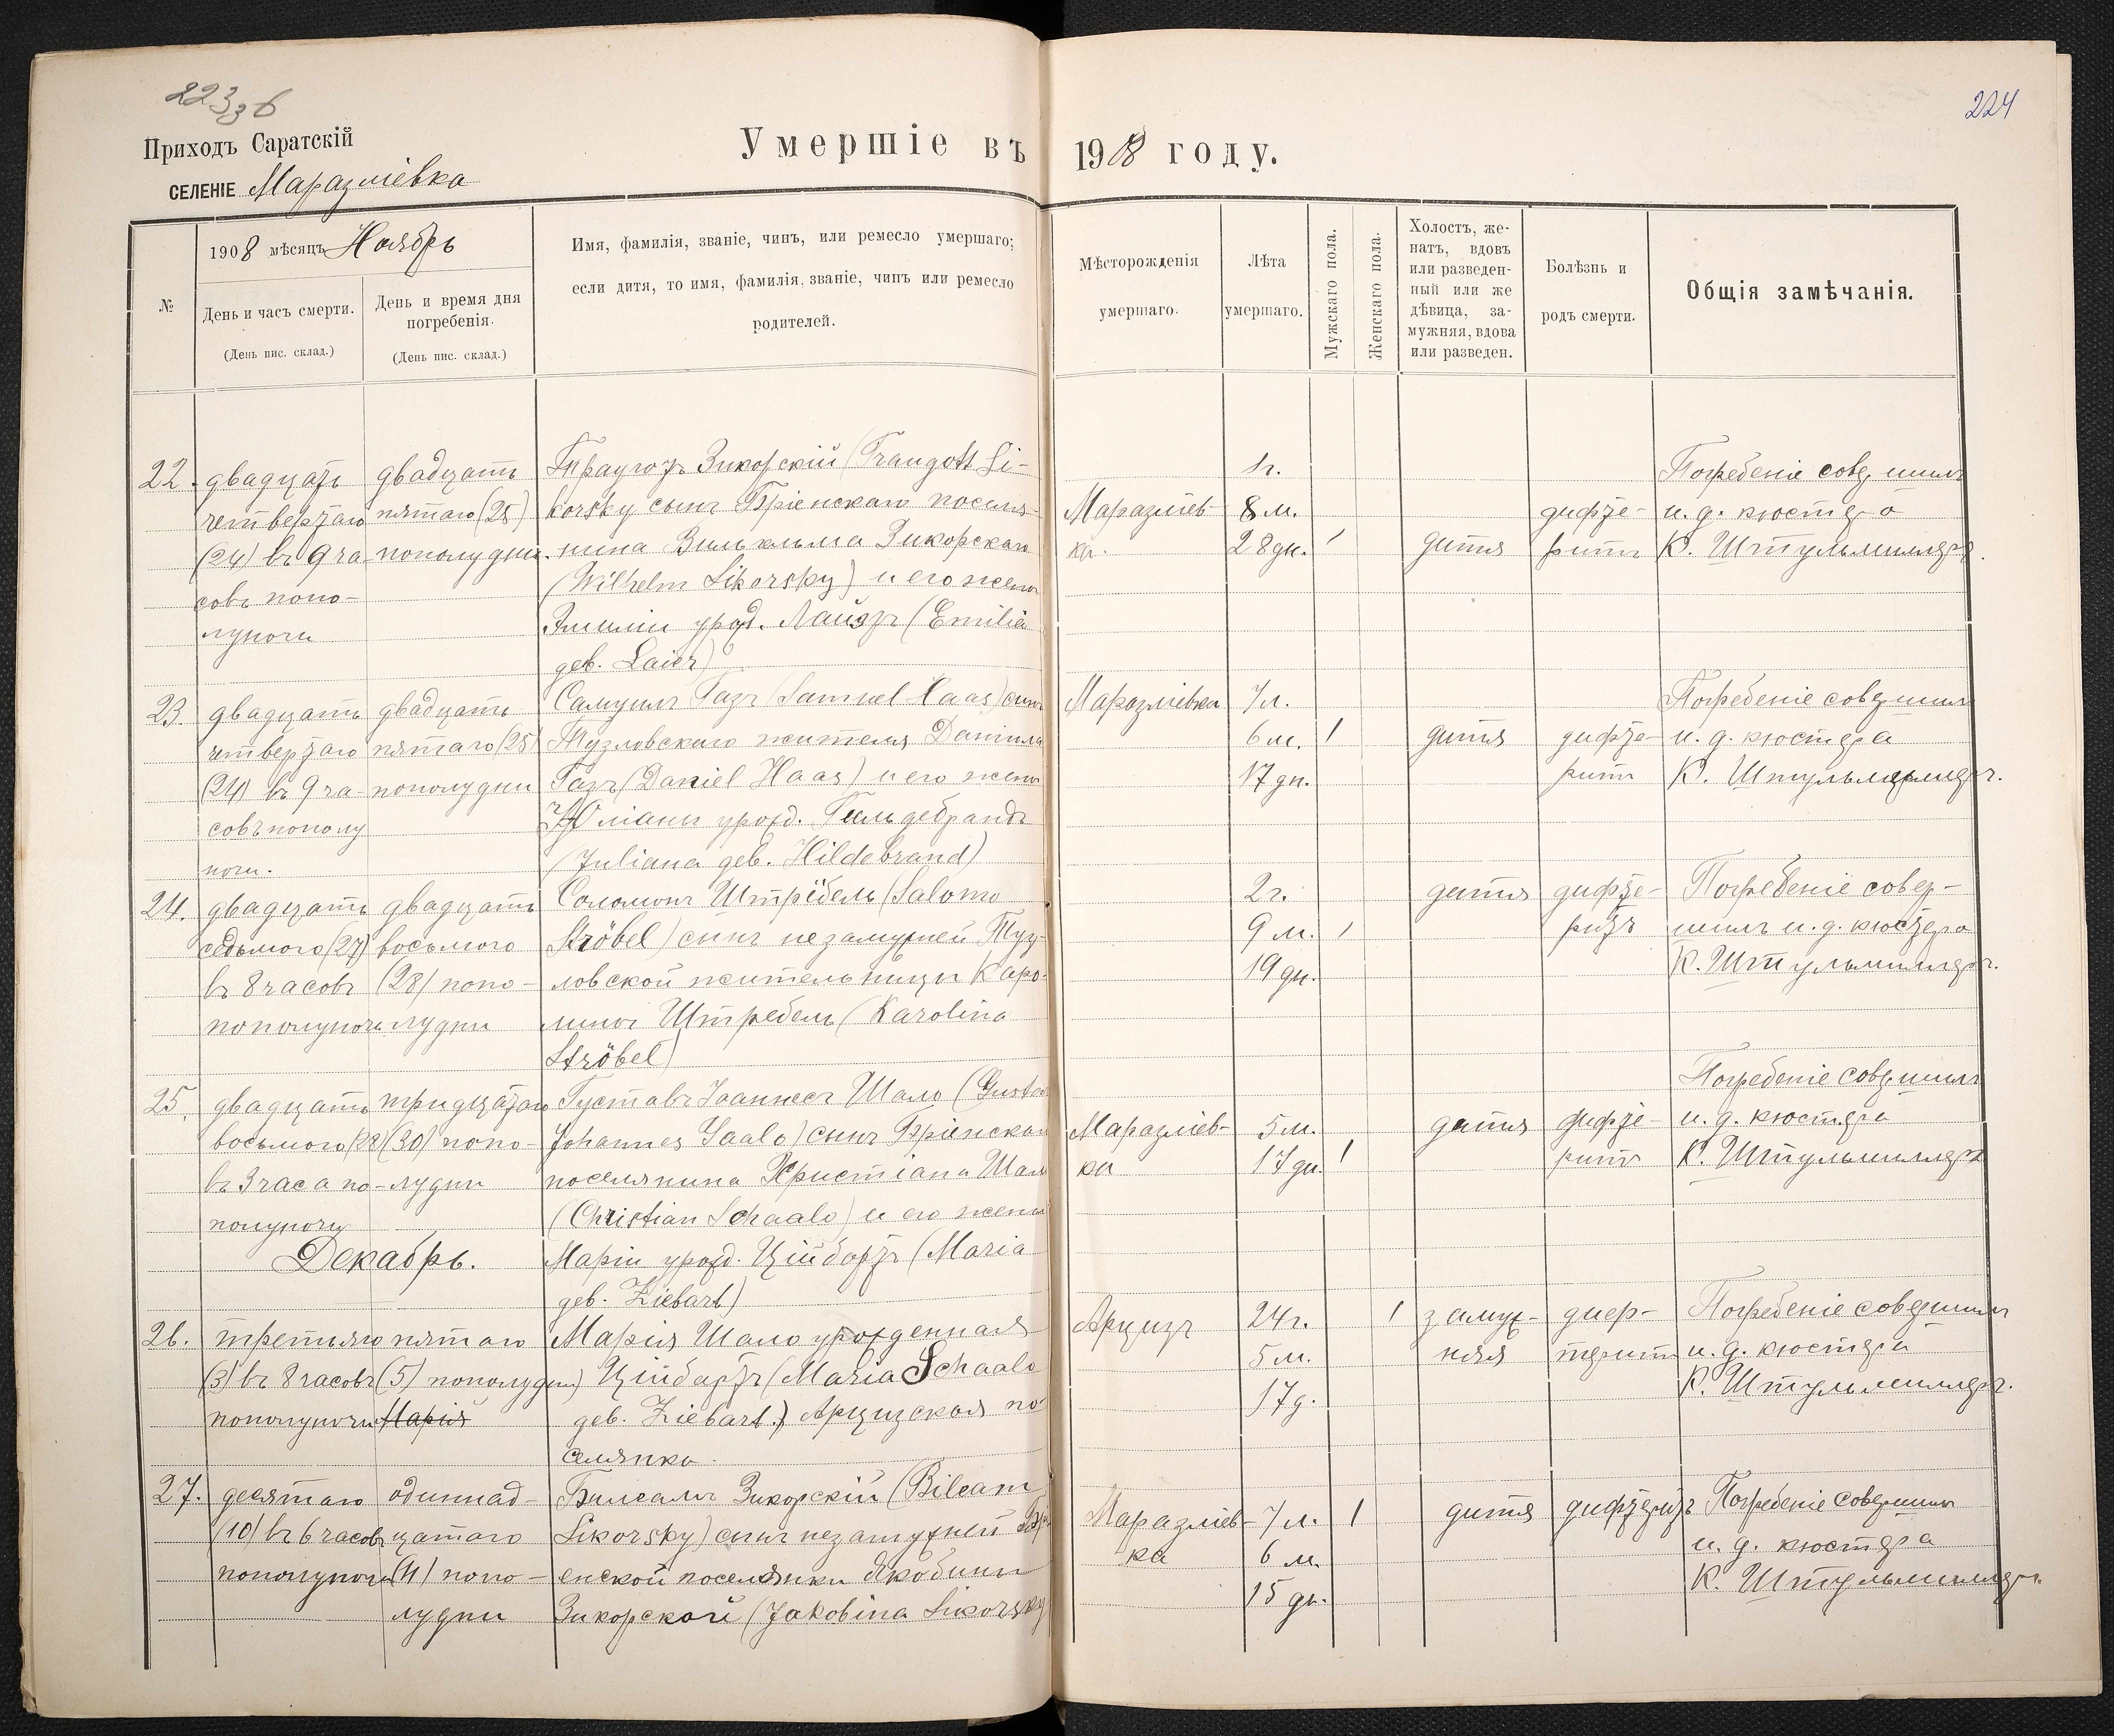 223 зб
224
Приходъ Саратскій
Умершіе въ 1908 году.
СЕЛЕНІЕ Маразліевка
№
1908 мѣсяцъ Ноябрь
День и часъ смерти.
(День пис. склад.)
День и время дня
погребенія.
(День пис. склад.)
Имя, фамилія, званіе, чинъ, или ремесло умершаго;
если дитя, то имя, фамилія, званіе, чинъ или ремесло
родителей.
Мѣсторожденія
умершаго.
Лѣта
умершаго.
Мужскаго пола.
Женскаго пола.
Холостъ, же-
натъ, вдовъ
или разведен-
ный или же
дѣвица, за-
мужняя, вдова
или разведен.
Болѣзнь и
родъ смерти.
Общія замѣчанія.
22.
двадцать
четвертаго
(24) въ 9 ча-
совъ попо-
луночи
двадцать
пятаго (25)
пополудни.
Трауготъ Зикорскій (Traugott Si-
korsky сынъ Бріенскаго поселя-
нина Вильгельма Зикорскаго
(Wilhelm Sikorsky) и его жены
Эмиліи урод. Лайэръ (Emilia
geb. Laier)
Маразліев-
ка.
1 г.
8 м.
28 дн.
1
дитя
дифте-
ритъ
Погребеніе совершилъ
и. д. кюстера
К. Штульмиллеръ.
23.
двадцать
четвертаго
(24) въ 9 ча-
совъ пополу
ночи.
двадцать
пятаго (25)
пополудни
Самуилъ Газъ (Samuel Haas) сынъ
Тузловскаго жителя Даніила
Газъ (Daniel Haas) и его жены
Юліаны урожд. Гильдебрандъ
(Juliana geb. Hildebrand)
Маразліевка
7 л.
6 м.
17 дн.
1
дитя
дифте-
ритъ
Погребеніе совершилъ
и. д. кюстера
К. Штульмиллеръ.
24.
двадцать
седьмого (27)
въ 8 часовъ
пополуночи
двадцать
восьмого
(28) попо-
лудни
Соломонъ Штрёбель (Salomo
Ströbel) сынъ незамужней Туз-
ловской жительницы Каро-
лины Штребель (Karolina
Ströbel)
2 г.
9 м.
19 дн.
1
дитя
дифте-
ритъ
Погребеніе совер-
шилъ и. д. кюстера
К. Штульмиллеръ.
25.
двадцать
восьмого (28
въ 3 часа по-
полуночи
тридцатаго
(30) попо-
лудни
Густавъ Іоаннесъ Шало (Gustav
Johannes Saalo) сынъ Бріенскаго
поселянина Христіана Шало
(Christian Schaalo) и его жены
Маріи урожд. Ційбартъ (Maria
geb. Ziebart)
Маразліев-
ка
5 м.
17 дн.
1
дитя
дифте-
ритъ
Погребеніе совершилъ
и. д. кюстера
К. Штульмиллеръ
Декабрь.
26.
третьяго
(3) въ 8 часовъ
пополуночи
пятаго
(5) пополудни)
Марія
Марія Шало урожденная
Ційбартъ (Maria Schaalo
geb. Ziebart.) Арцизская по-
селянка.
Арцизъ
24 г.
5 м.
17 д.
1
замуж-
няя
диф-
теритъ
Погребеніе совершилъ
и. д. кюстера
К. Штульмиллеръ.
27.
десятаго
(10) въ 6 часовъ
пополуночи
одиннад-
цатаго
(11) попо-
лудни
Билеамъ Зикорскій (Bileam
Sikorsky) сынъ незамужней Брі-
енской поселянки Якобины
Зикорской (Jakobina Sikorsky
Маразліев-
ка
7 л.
6 м.
15 дн.
1
дитя
дифтеритъ
Погребеніе совершилъ
и. д. кюстера
К. Штульмиллеръ.